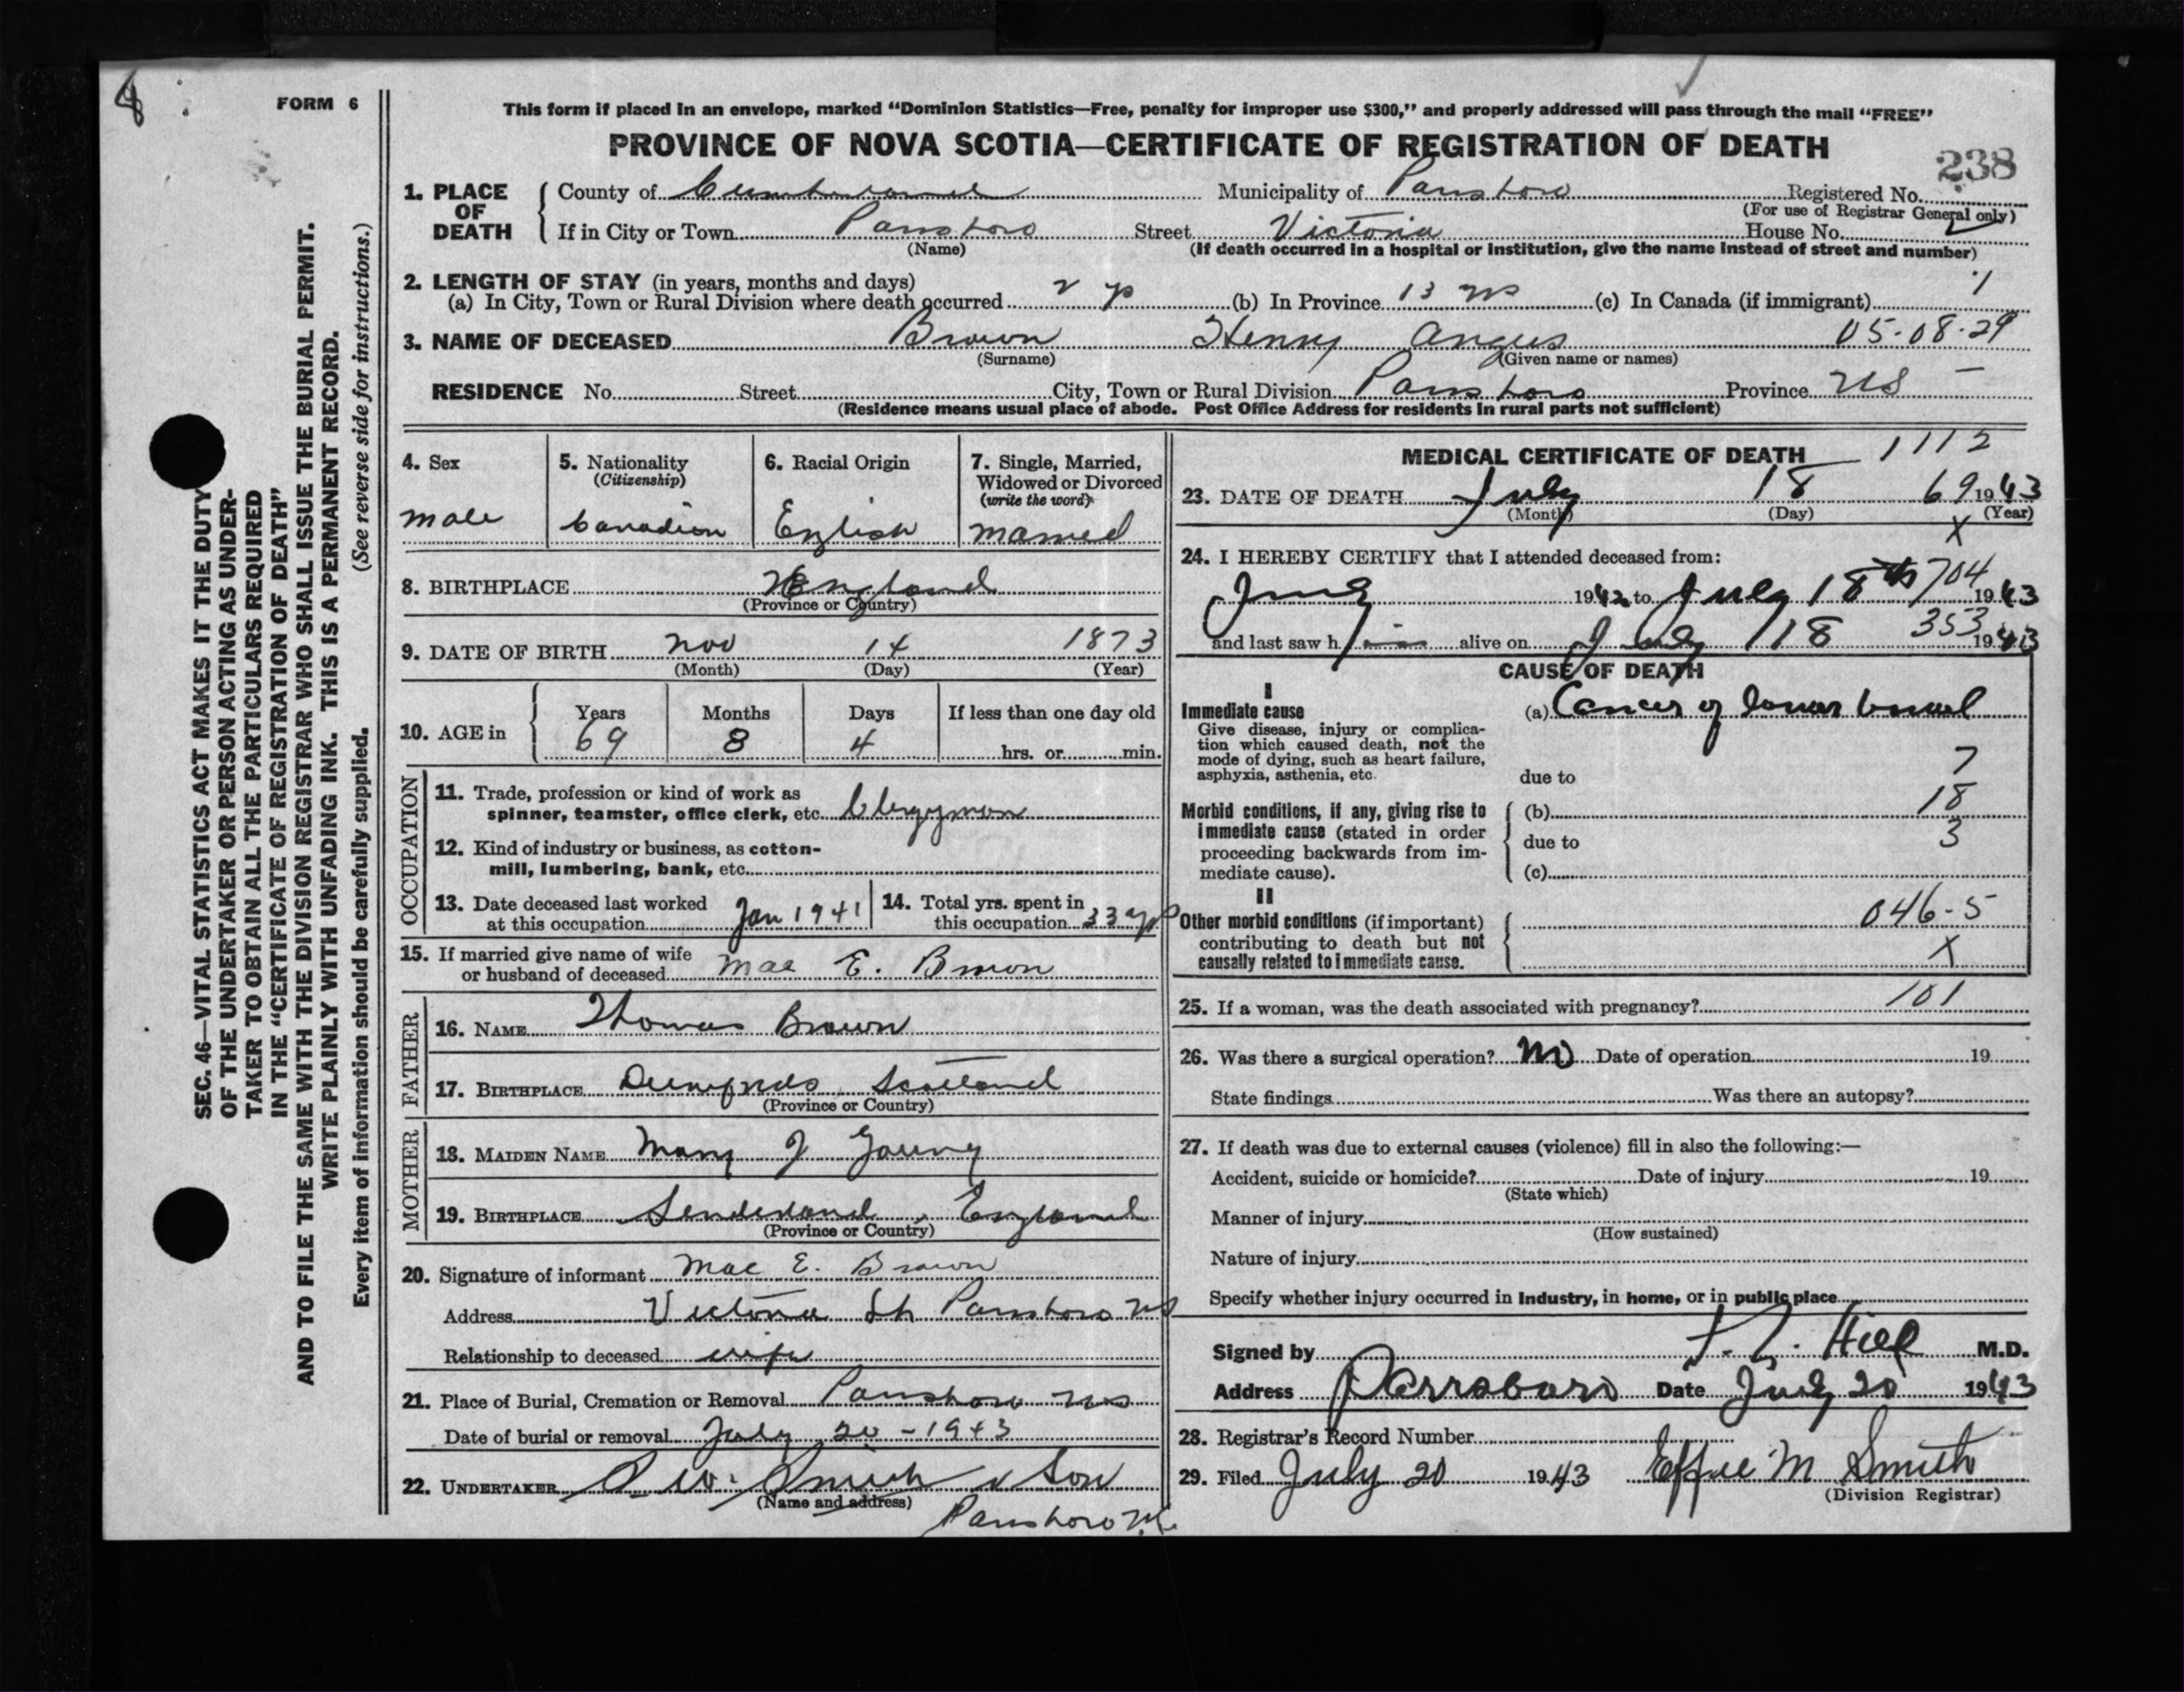 8
FORM 6
SEC. 46—VITAL STATISTICS ACT MAKES IT THE DUTY
OF THE UNDERTAKER OR PERSON ACTING AS UNDER-
TAKER TO OBTAIN ALL THE PARTICULARS REQUIRED
IN THE “CERTIFICATE OF REGISTRATION OF DEATH”
AND TO FILE THE SAME WITH THE DIVISION REGISTRAR WHO SHALL ISSUE THE BURIAL PERMIT.
WRITE PLAINLY WITH UNFADING INK. THIS IS A PERMANENT RECORD.
Every item of information should be carefully supplied. (See reverse side for instructions.)
This form if placed in an envelope, marked “Dominion Statistics—Free, penalty for improper use $300,” and properly addressed will pass through the mail “FREE”
PROVINCE OF NOVA SCOTIA—CERTIFICATE OF REGISTRATION OF DEATH
238
1. PLACE OF DEATH County of Cumberland Municipality of Parrsboro Registered No.
(For use of Registrar General only)
If in City or Town Parrsboro Street Victoria House No.
(Name) (If death occurred in a hospital or institution, give the name instead of street and number)
2. LENGTH OF STAY (in years, months and days)
(a) In City, Town or Rural Division where death occurred 2 (b) In Province 13 (c) In Canada (if immigrant)
3. NAME OF DECEASED Brown Henry Angus 05-08-29
(Surname) (Given name or names)
RESIDENCE No. Street City, Town or Rural Division Parrsboro Province NS
(Residence means usual place of abode. Post Office Address for residents in rural parts not sufficient)
4. Sex 5. Nationality 6. Racial Origin 7. Single, Married,
(Citizenship) Widowed or Divorced
(write the word)
male Canadian English married
8. BIRTHPLACE England
(Province or Country)
9. DATE OF BIRTH Nov 14 1873
(Month) (Day) (Year)
10. AGE in Years Months Days If less than one day old
69 8 4 hrs. or min.
OCCUPATION
11. Trade, profession or kind of work as
spinner, teamster, office clerk, etc. Clergyman
12. Kind of industry or business, as cotton-
mill, lumbering, bank, etc.
13. Date deceased last worked 14. Total yrs. spent in
at this occupation Jan 1941 this occupation 33 yrs
15. If married give name of wife
or husband of deceased Mae E. Brown
FATHER
16. NAME Thomas Brown
17. BIRTHPLACE Scotland
(Province or Country)
MOTHER
18. MAIDEN NAME Mary J Young
19. BIRTHPLACE Senderland, England
(Province or Country)
20. Signature of informant Mae E. Brown
Address Victoria St Parrsboro NS
Relationship to deceased wife
21. Place of Burial, Cremation or Removal Parrsboro NS
Date of burial or removal July 20 - 1943
22. UNDERTAKER Smith & Son
(Name and address)
Parrsboro N.S.
MEDICAL CERTIFICATE OF DEATH 1112
23. DATE OF DEATH July 18 69 1943
(Month) (Day) (Year)
X
24. I HEREBY CERTIFY that I attended deceased from:
1942 to July 18th 704 1943
and last saw him alive on July 18 353 1943
CAUSE OF DEATH
I
Immediate cause (a) Cancer of lower bowel
Give disease, injury or complica-
tion which caused death, not the
mode of dying, such as heart failure,
asphyxia, asthenia, etc. due to
7
18
Morbid conditions, if any, giving rise to (b)
immediate cause (stated in order due to 3
proceeding backwards from im-
mediate cause). (c)
II
Other morbid conditions (if important) 046-5
contributing to death but not
causally related to immediate cause. X
25. If a woman, was the death associated with pregnancy? 101
26. Was there a surgical operation? No Date of operation 19
State findings Was there an autopsy?
27. If death was due to external causes (violence) fill in also the following:—
Accident, suicide or homicide? Date of injury 19
(State which)
Manner of injury
(How sustained)
Nature of injury
Specify whether injury occurred in Industry, in home, or in public place
Signed by Hill M.D.
Address Parrsboro Date July 20 1943
28. Registrar's Record Number
29. Filed July 20 1943 Effie M Smith
(Division Registrar)